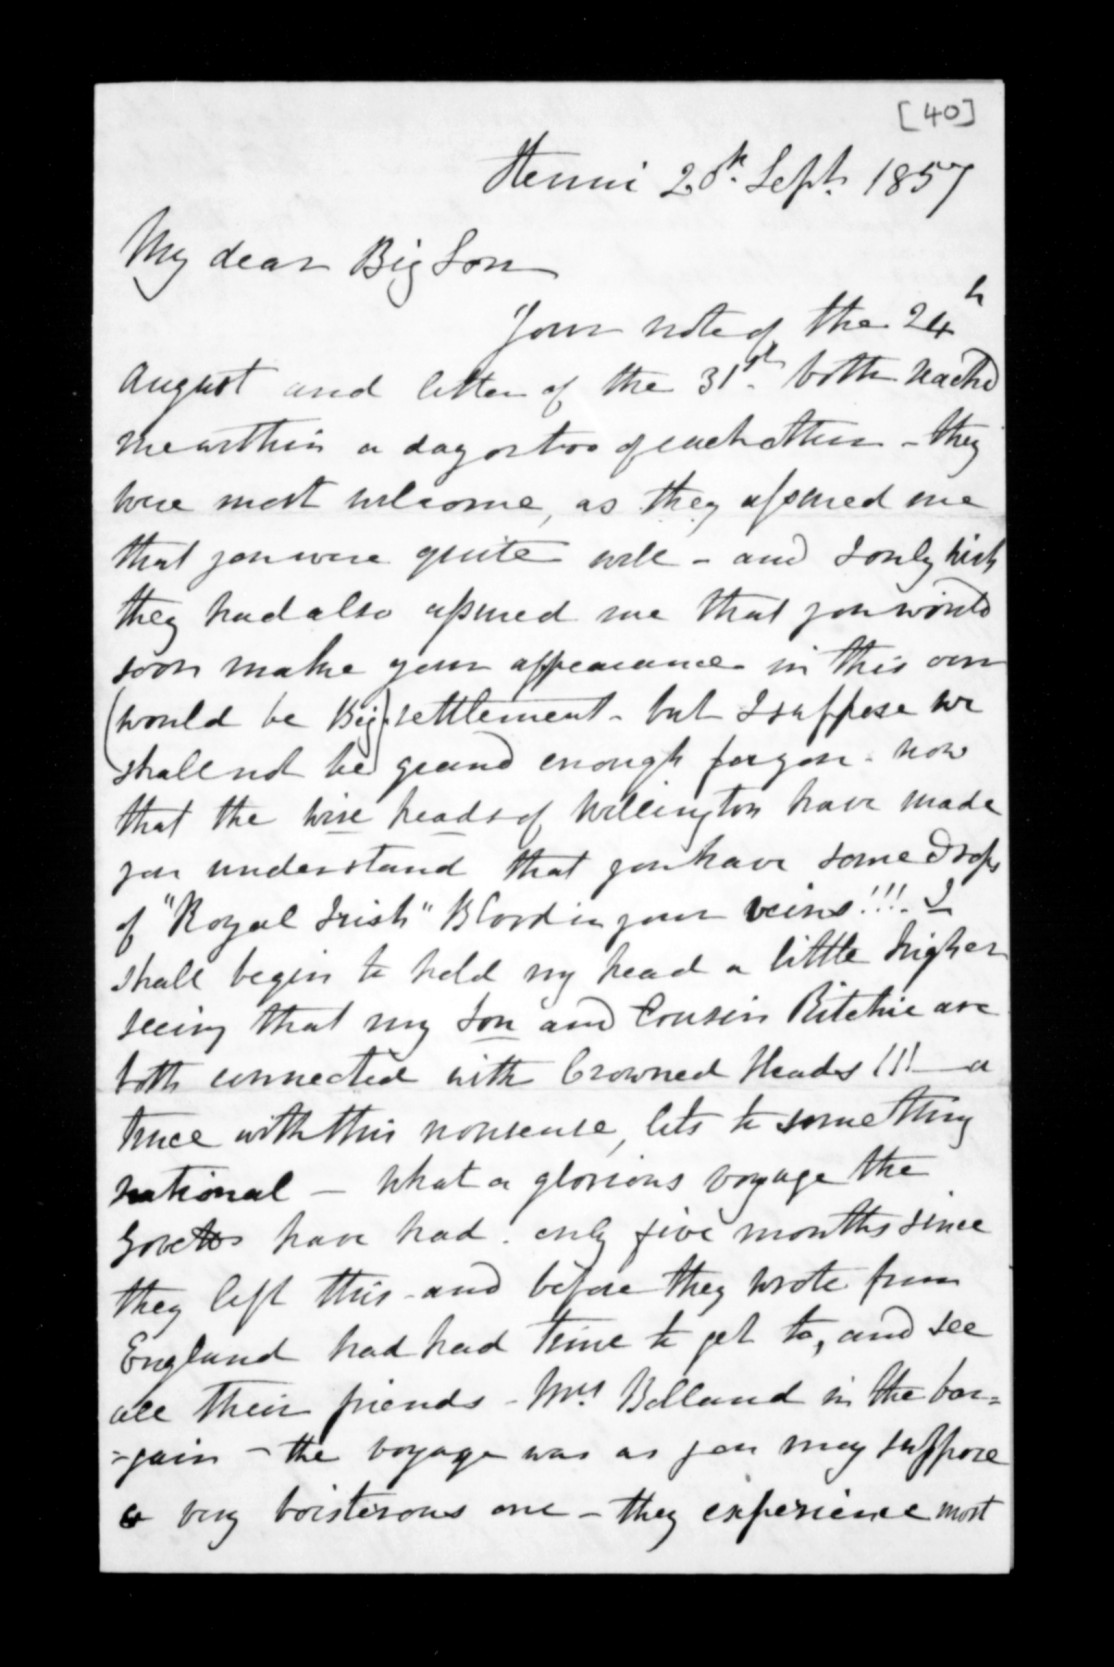 [40]
Henui 28th. Sept. 1857
My dear Big Son
Your note of the 24h
August and letter of the 31st. both reached
me within a day or two of each other - they
were most welcome, as they assured me
that you were quite well - and I only wish
they had also assured me that you would
soon make your appearance in this our
(would be Big) settlement - but I suppose we
shall not be grand enough for you - now
that the wise heads of Wellington have made
you understand that you have some drops
of "Royal Irish" Blood in your veins!!!. I
shall begin to hold my head a little higher
seeing that my Son and Cousin Ritchie are
both connected with Crowned Heads!!! - a
truce with this nonsense, lets to something
rational - what a glorious voyage the
Govetts have had. only five months since
they left this - and before they wrote from
England had had time to get to, and see
all their friends - Mrs. Bolland in the bar=
=gain - the voyage was as you may suppose
a very boisterous one - they experience most